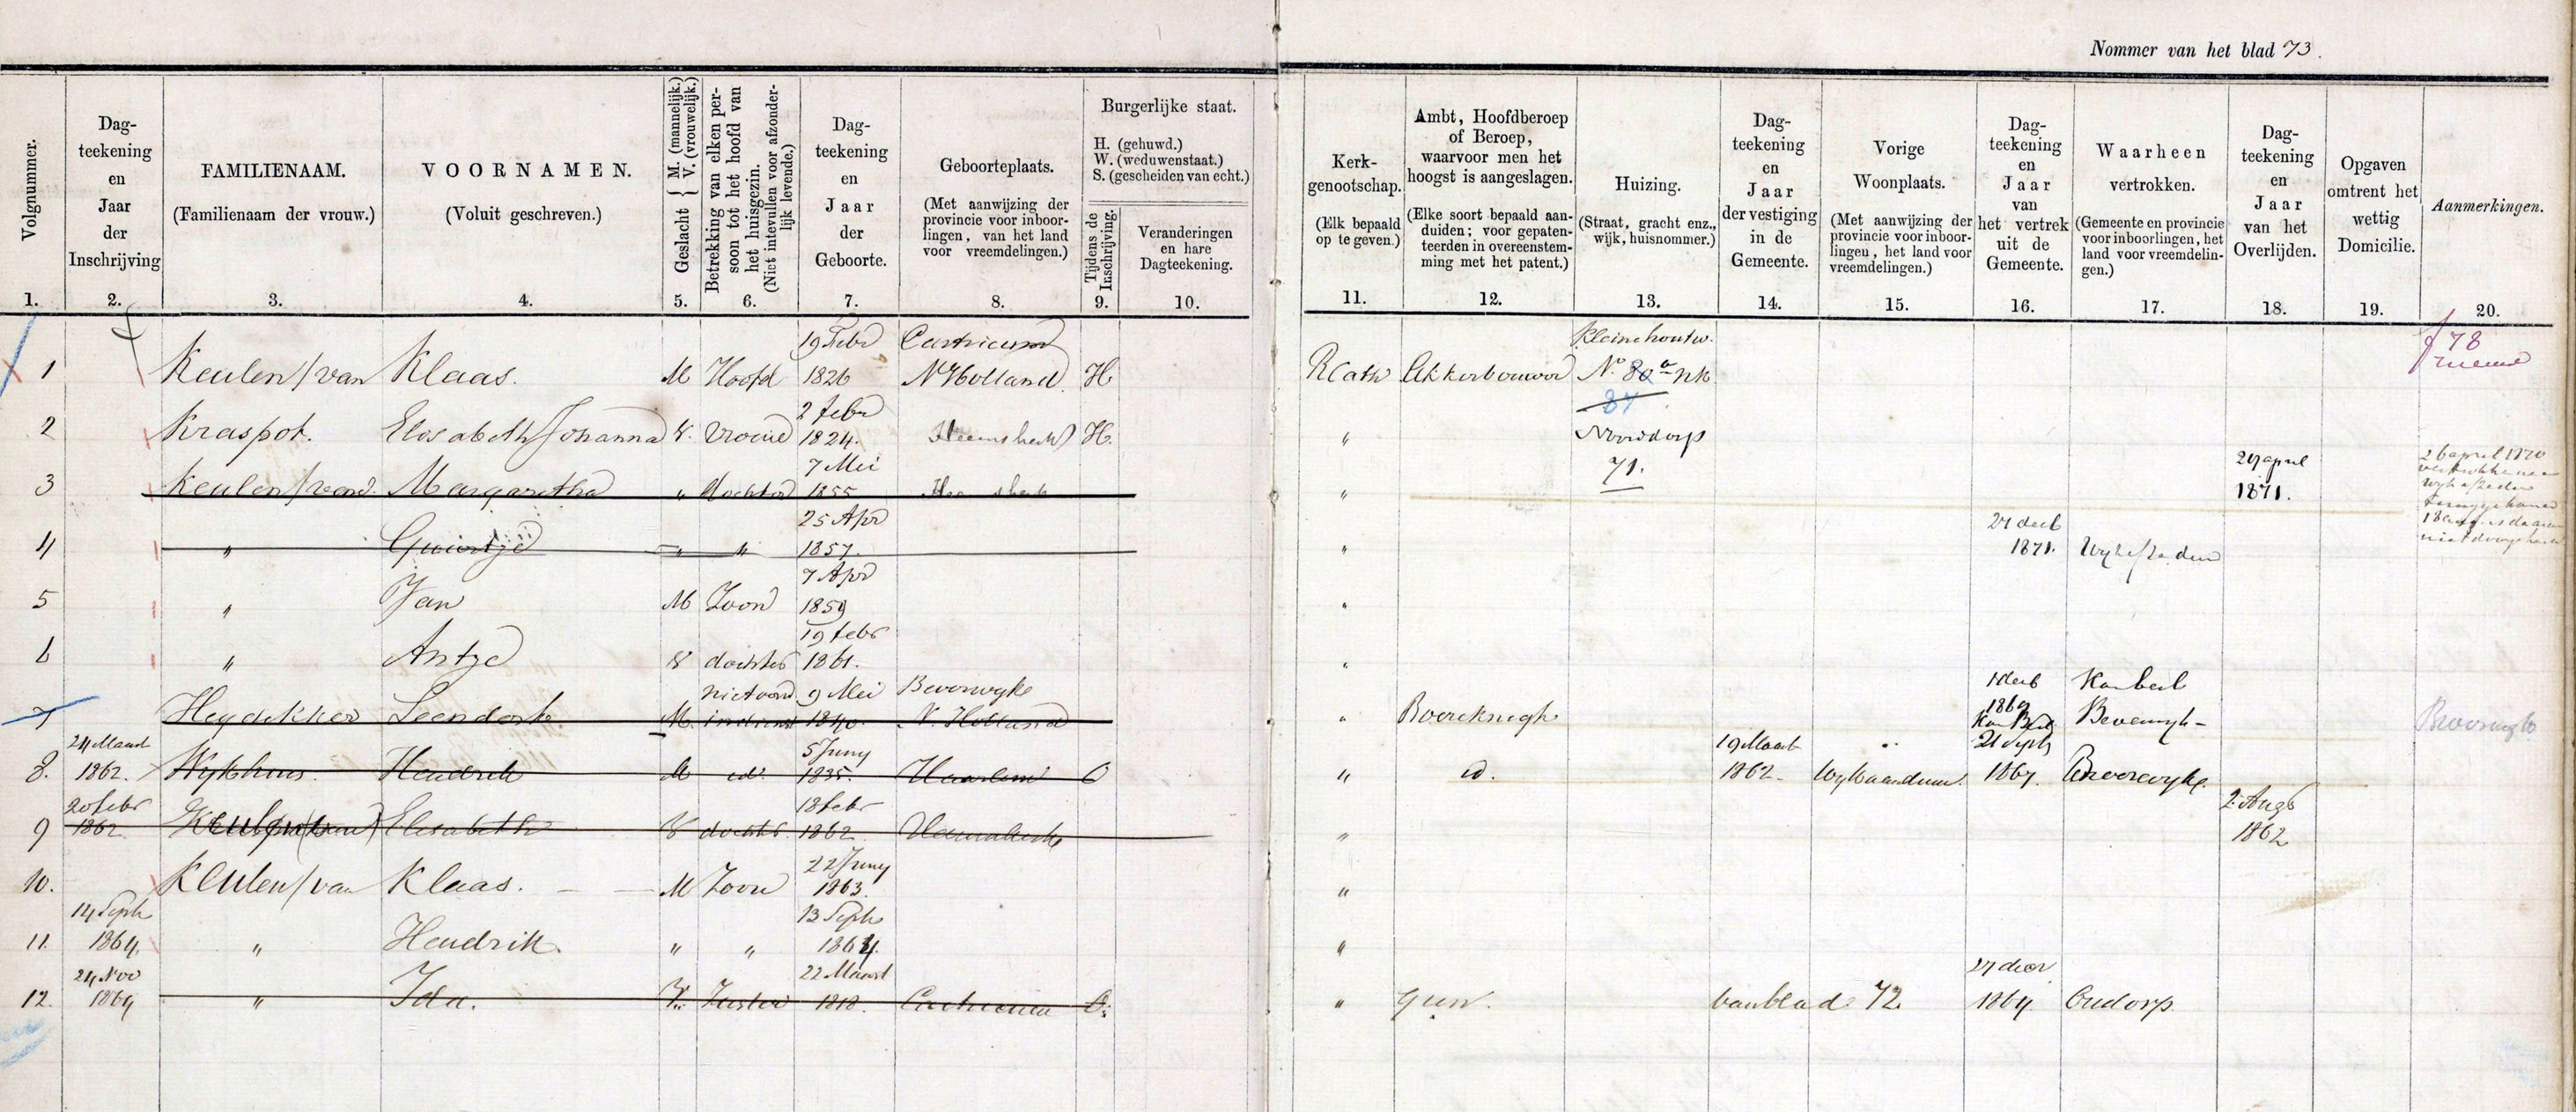 Nommer van het blad 73.
Volgnummer.
Dag-
teekening
en
Jaar
der
Inschrijving
FAMILIENAAM.
(Familienaam der vrouw.)
VOORNAMEN.
(Voluit geschreven.)
Geslacht { M. (mannelijk.)
V. (vrouwelijk.)
Betrekking van elken per-
soon tot het hoofd van
het huisgezin.
(Niet intevullen voor afzonder-
lijk levende.)
Dag-
teekening
en
Jaar
der
Geboorte.
Geboorteplaats.
(Met aanwijzing der
provincie voor inboor-
lingen, van het land
voor vreemdelingen.)
Burgerlijke staat.
H. (gehuwd.)
W. (weduwenstaat.)
S. (gescheiden van echt.)
Tijdens de
Inschrijving.
Veranderingen
en hare
Dagteekening.
Kerk-
genootschap.
(Elk bepaald
op te geven.)
Ambt, Hoofdberoep
of Beroep,
waarvoor men het
hoogst is aangeslagen.
(Elke soort bepaald aan-
duiden; voor gepaten-
teerden in overeenstem-
ming met het patent.)
Huizing.
(Straat, gracht enz.,
wijk, huisnommer.)
Dag-
teekening
en
Jaar
der vestiging
in de
Gemeente.
Vorige
Woonplaats.
(Met aanwijzing der
provincie voor inboor-
lingen, het land voor
vreemdelingen.)
Dag-
teekening
en
Jaar
van
het vertrek
uit de
Gemeente.
Waarheen
vertrokken.
(Gemeente en provincie
voor inboorlingen, het
land voor vreemdelin-
gen.)
Dag-
teekening
en
Jaar
van het
Overlijden.
Opgaven
omtrent het
wettig
Domicilie.
Aanmerkingen.
1. 2. 3. 4. 5. 6. 7. 8. 9. 10. 11. 12. 13. 14. 15. 16. 17. 18. 19. 20.
19 Febr Castricum Kleine houtw. f 78
1 Keulen / van Klaas. M Hoofd 1826 N Holland. H RCath Akkerbouwer No. 80 nieuw
2 febr 87
2 Kraspot. Elisabeth Johanna V. Vrouw 1824. Heemskerk H. " Noorddorp
7 Mei 71. 29 april 26 april 1870
3 Keulen / van Margaretha " dochter 1855 Heemskerk " 1871.
25 Apr 27 decb
4 " Guurtje " " 1857. " 1871. Wyk a/Zee duin
7 Apr
5 " Jan M Zoon 1859 "
19 febr
6 " Antje V dochter 1861. "
9 Mei Beverwyke 1 decb
7 Heydekker Leendert M. 1840. N. Holland " Boereknegt 1869 Beverwyk
24 Maart 5 Juny 19 Maart 21 Sept
8. 1862. Wykhuis. Hendrik M id. 1835. Haarlem O " id. 1862. Wykaanduin. 1867. Beverwyke.
20 febr 18 febr 2 Augs
9 1862. Keulen (van) Elisabeth V dochter. 1862 Heemskerk " 1862
22 Juny
10. Keulen / van Klaas. M Zoon 1863. "
14 Sept 13 Sept
11. 1864. " Hendrik. " " 1864. "
24 Nov 22 Maart 27 decr
12. 1864 " Ida. V. Zuster 1818. Castricum O. " geen. van blad 72 1864. Oudorp.